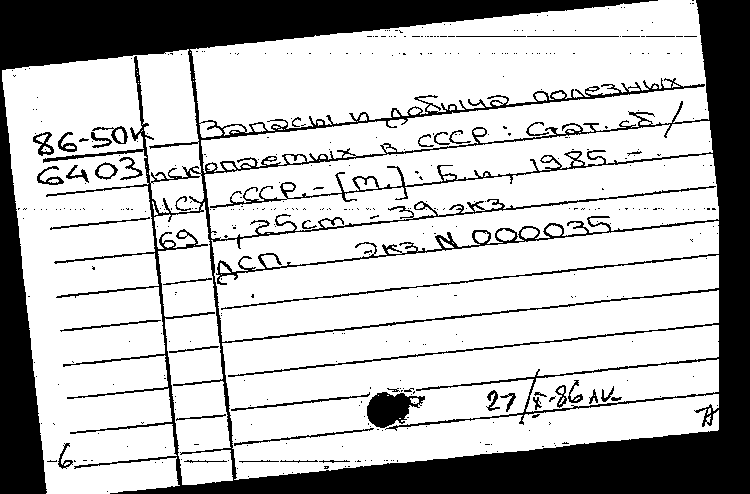 86-50К
6403
Запасы и добыча полезных
ископаемых в СССР: Стат. сб./
ЦСУ СССР. - [М.]: Б.и., 1985. -
69 с.; 25 см. - 39 экз.
ДСП. Экз. N 000035.
27/X-86
6
А